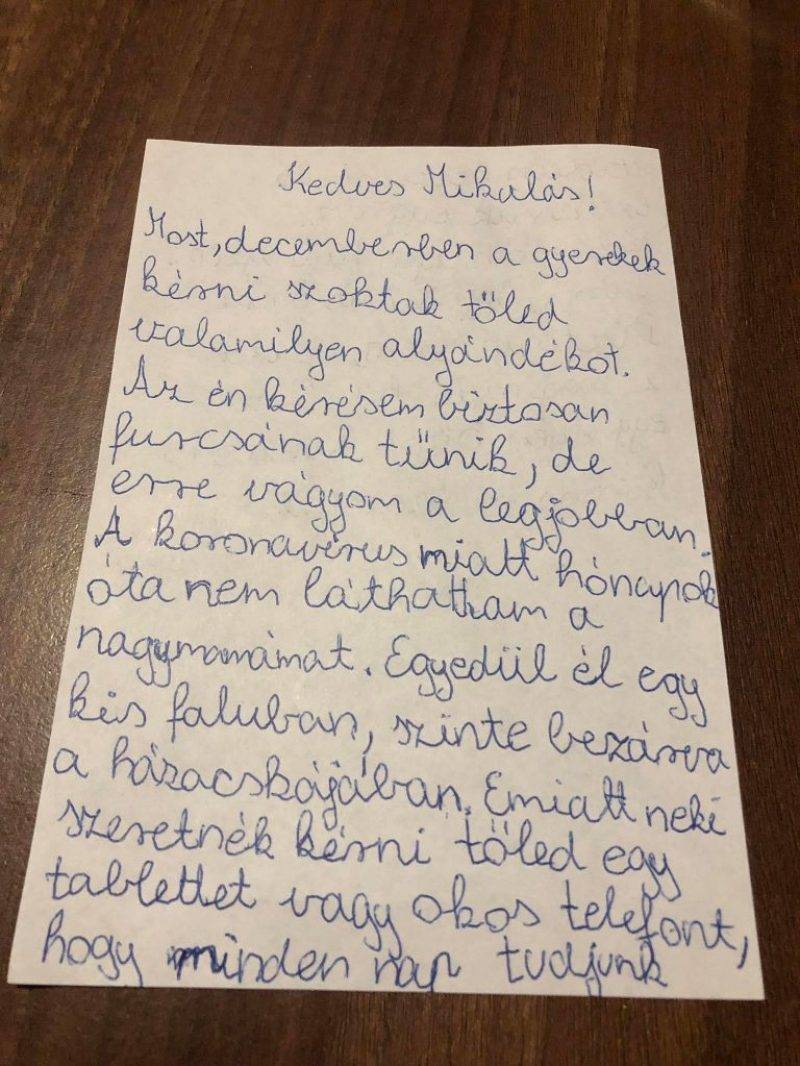 Kedves Mikulás!
Most, decemberben a gyerekek
kérni szoktak tőled
valamilyen alyándékot.
Az én kérésem biztosan
furcsának tűnik, de
erre vágyom a legjobban.
A koronavírus miatt hónapok
óta nem láthattam a
nagymamámat. Egyedül él egy
kis faluban, szinte bezárva
a házacskájában. Emiatt neki
szeretnék kérni tőled egy
tabletet vagy okos telefont,
hogy minden nap tudjunk